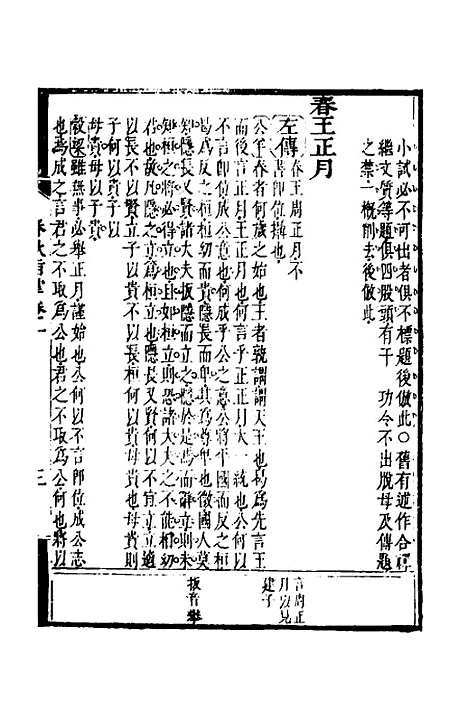 小試必不可出者俱不標題後倣此○舊有連作合單
繼文質等題俱四股頭有干　功令不出脫母及傳題
之禁一槩削去後倣此
春王正月
左傳
春王周正月不
書即位攝也
公羊春者何歲之始也王者孰謂謂天王也曷爲先言王
而後言正月王正月也何言乎王正月大一統也公何以
不言即位成公意也何成乎公之意公將平國而反之桓
曷爲反之桓桓幼而貴隱長而卑其爲尊卑也微國人莫
知隱長又賢諸大夫扳隱而立之隱於是焉而辭立則未
知桓之將必得立也且如桓立則恐諸大夫之不能相幼
君也故凡隱之立爲桓立也隱長又賢何以不宜立立適
以長不以賢立子以貴不以長桓何以貴母貴也母貴則
子何以貴子以
母貴母以子貴
穀梁雖無事必舉正月謹始也公何以不言即位成公志
也焉成之言君之不取爲公也君之不取爲公何也將以
言周正
月以見
建子
扳音攀
春秋 卷一
三